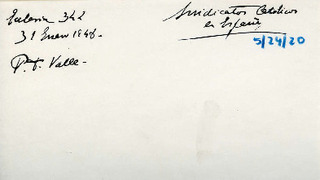 Ecclesia 342
31 Enero 1948-
P. F. Valle-
Sindicatos Católicos
en España
5/24/20